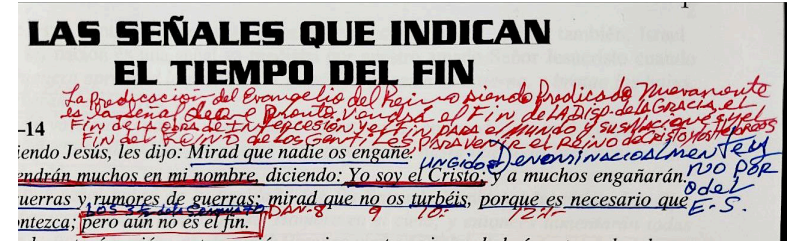 LAS SEÑALES QUE INDICAN
EL TIEMPO DEL FIN
La Predicación del Evangelio del Reino siendo Predicado Nuevamente
es la señal de que Pronto vendrá el Fin de la Disp. de la GRACIA, el
Fin de la obra de INTERCESIÓN y el FIN PARA el MUNDO y sus NACIONES y el
FIN del REINO de los GENTILES, PARA venir el REINO de CRISTO y los
–14
iendo Jesús, les dijo: Mirad que nadie os engañe.
UNGIDOS Denominacionalmente y
endrán muchos en mi nombre, diciendo: Yo soy el Cristo; y a muchos engañarán.
NO POR
uerras y rumores de guerras; mirad que no os turbéis, porque es necesario que
o del
E-S.
ontezca; pero aún no es el fin.
DAN-8 9 10- 12-